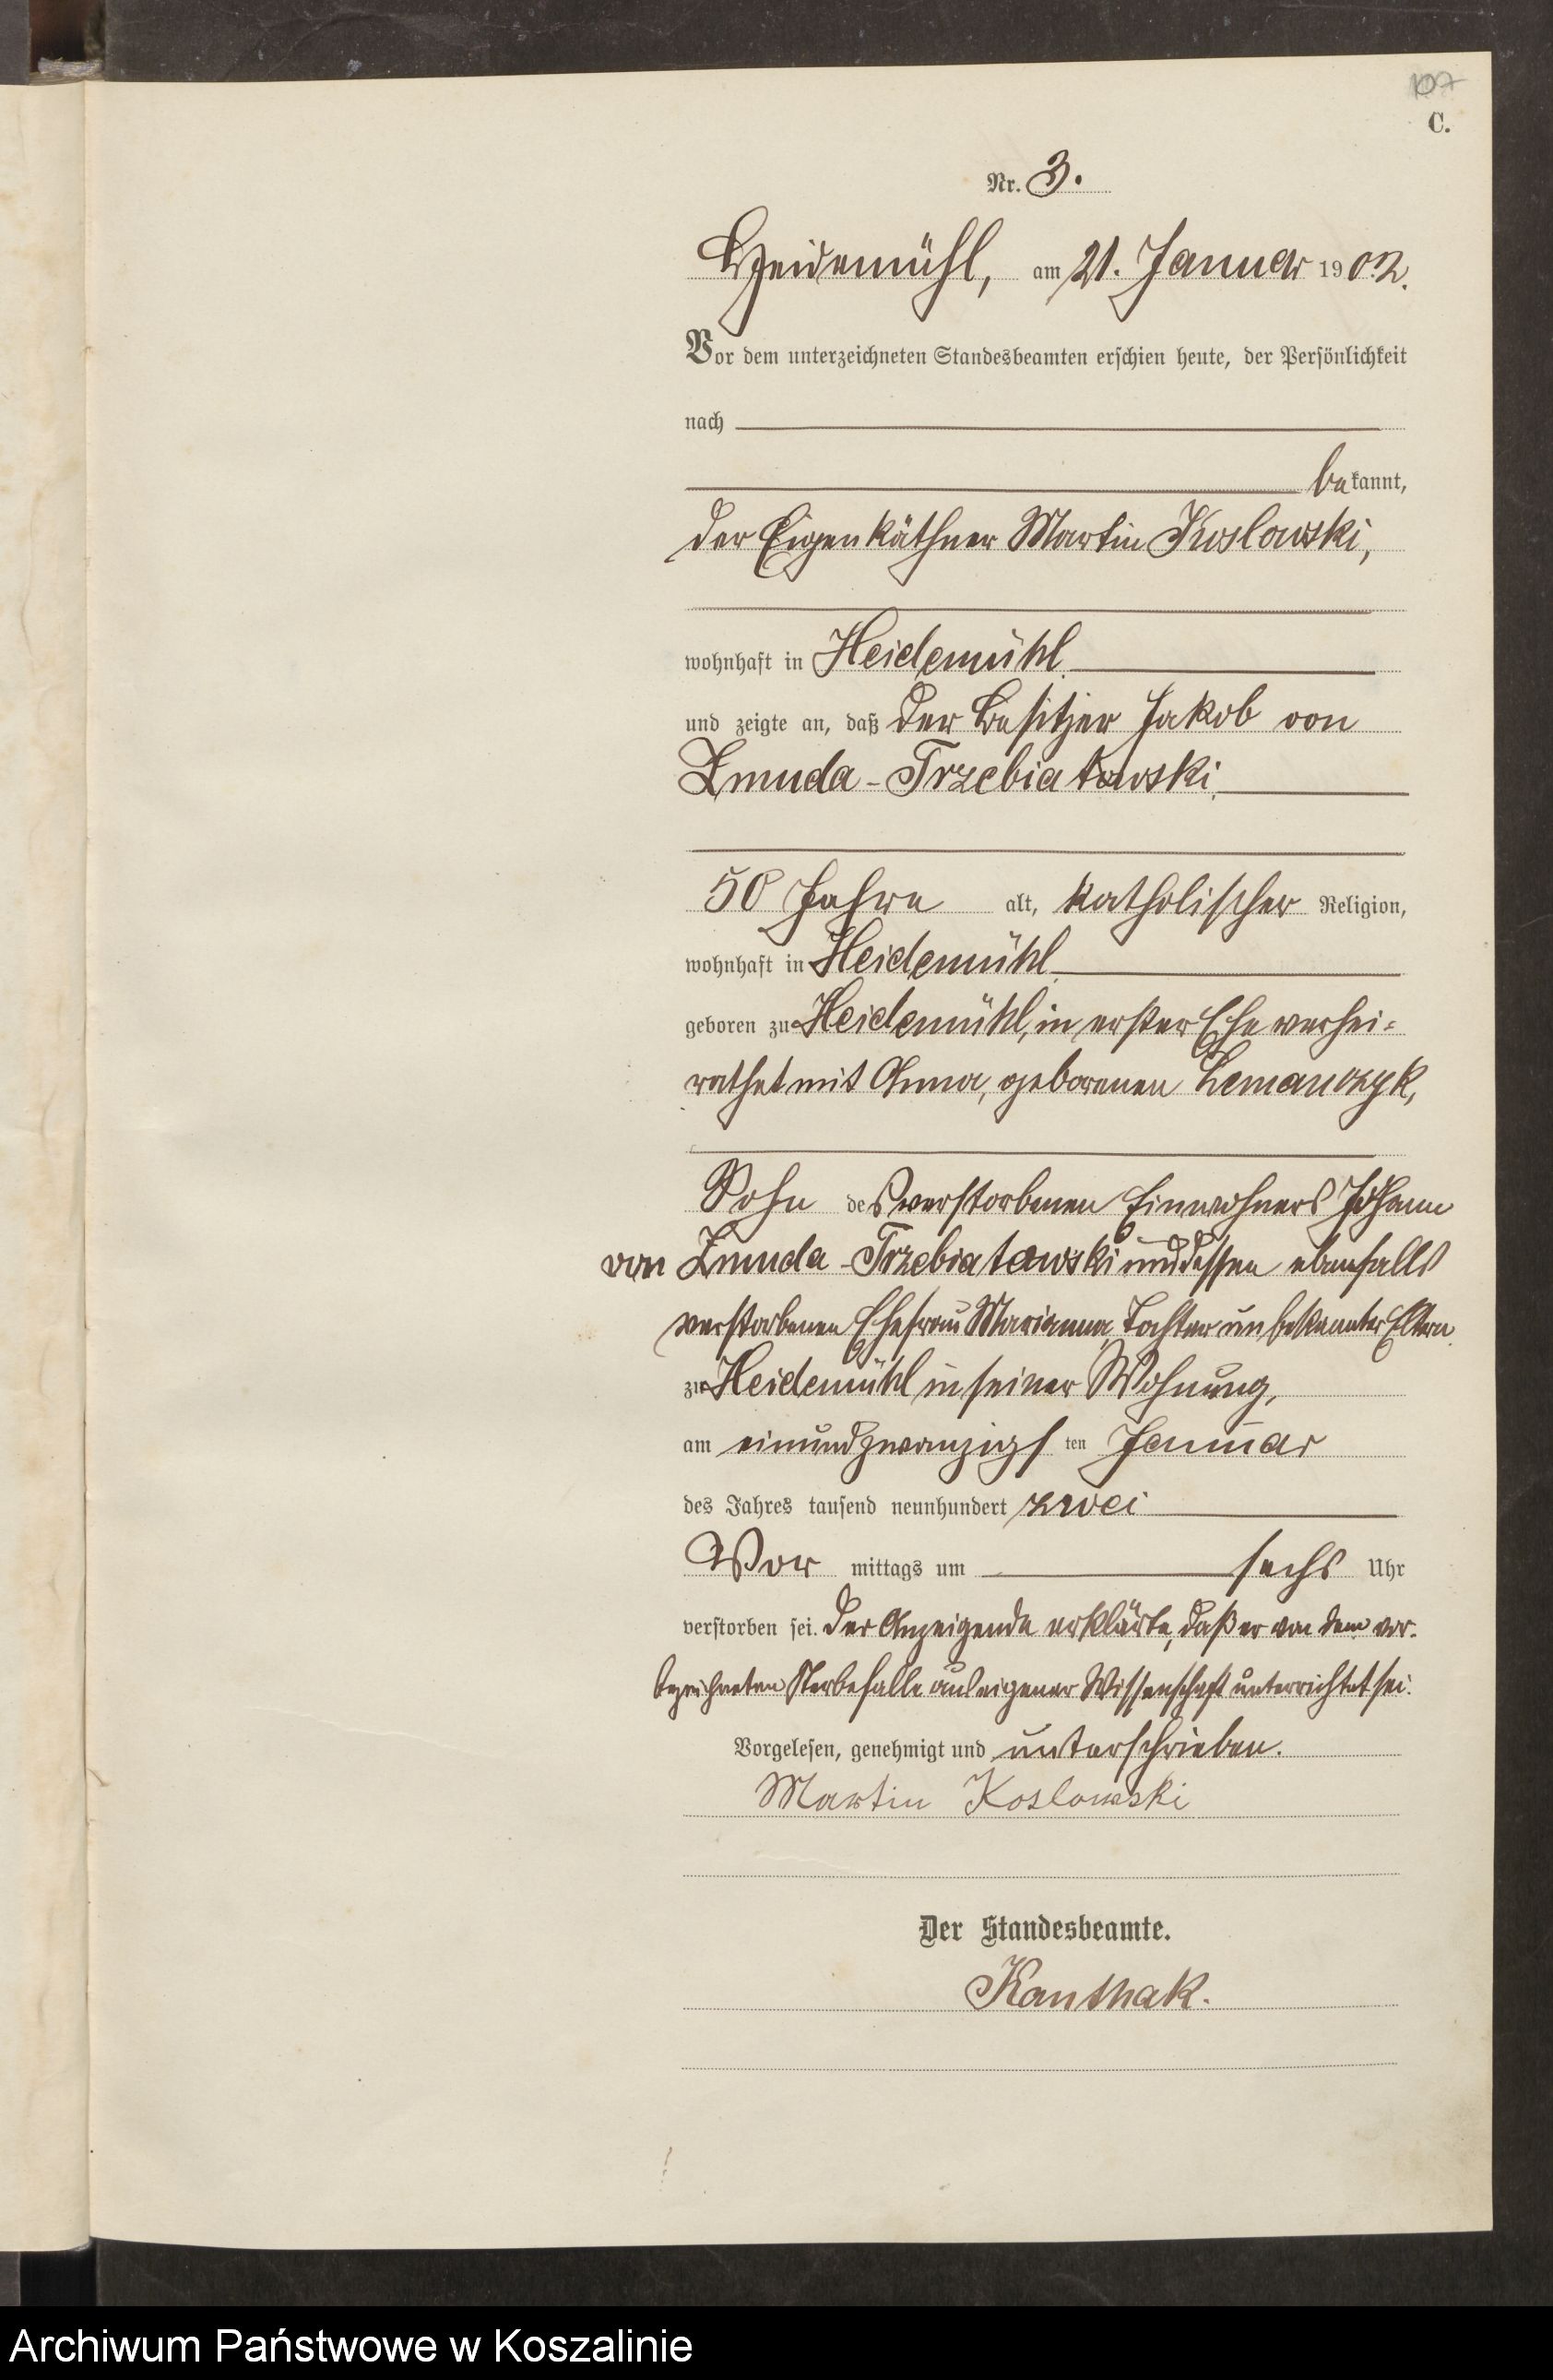 107
C.
Nr. 3.
Heidemühl, am 21. Januar 1902.
Vor dem unterzeichneten Standesbeamten erschien heute, der Persönlichkeit
nach
bekannt,
der Eigenkäthner Martin Koslowski,
wohnhaft in Heidemühl
und zeigte an, daß der Besitzer Jakob von
Zmuda-Trzebiatowski
50 Jahre alt, katholischer Religion,
wohnhaft in Heidemühl
geboren zu Heidemühl, in erster Ehe verhei-
rathet mit Anna, geborenen Lemanczyk,
Sohn des verstorbenen Einwohners Johann
von Zmuda-Trzebiatowski und dessen ebenfalls
verstorbenen Ehefrau Marianna, Tochter unbekannter Eltern
zu Heidemühl in seiner Wohnung,
am einundzwanzigsten Januar
des Jahres tausend neunhundert zwei
Vormittags um sechs Uhr
verstorben sei. Der Anzeigende erklärte, daß er von dem vor-
bezeichneten Sterbefalle aus eigener Wissenschaft unterrichtet sei.
Vorgelesen, genehmigt und unterschrieben.
Martin Koslowski
Der Standesbeamte.
Kanthak.
Archiwum Państwowe w Koszalinie